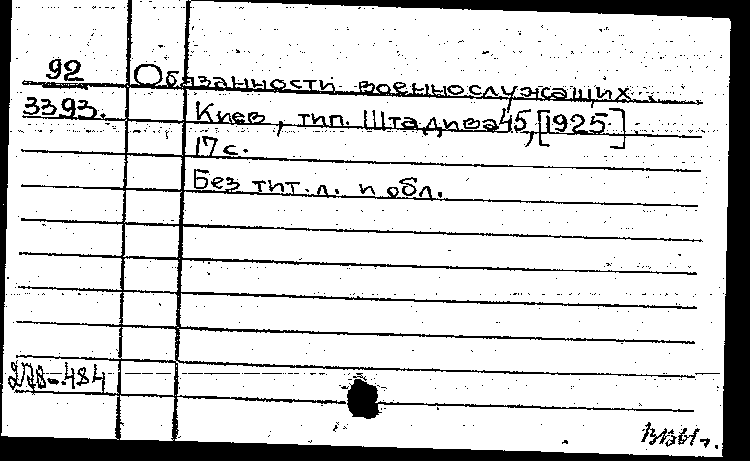 92
Обязанности военнослужащих.
3393.
Киев, тип. Штадива 45, [1925]
17 с.
Без тит. л. и обл.
278-484